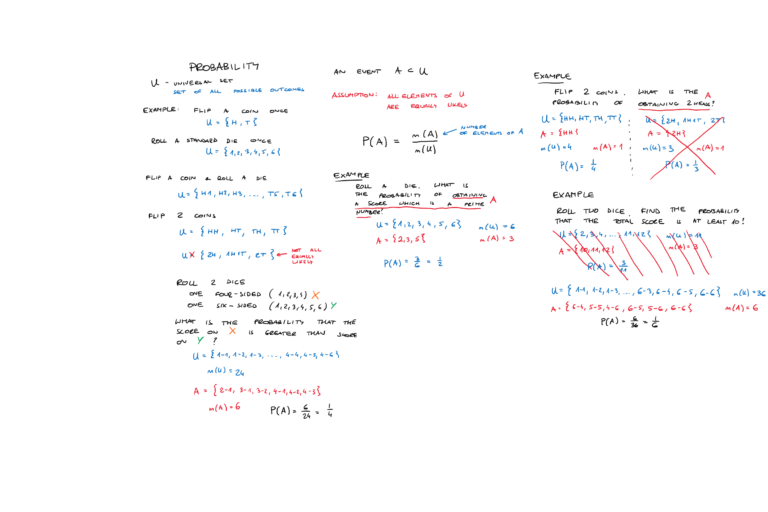 PROBABILITY
U - UNIVERSAL SET
SET OF ALL POSSIBLE OUTCOMES
EXAMPLE: FLIP A COIN ONCE
U = { H, T }
ROLL A STANDARD DIE ONCE
U = { 1, 2, 3, 4, 5, 6 }
FLIP A COIN & ROLL A DIE
U = { H1, H2, H3, ..., T5, T6 }
FLIP 2 COINS
U = { HH, HT, TH, TT }
U X { 2H, 1H1T, 2T } ← NOT ALL
EQUALLY
LIKELY
ROLL 2 DICE
ONE FOUR-SIDED ( 1, 2, 3, 4 ) X
ONE SIX-SIDED ( 1, 2, 3, 4, 5, 6 ) Y
WHAT IS THE PROBABILITY THAT THE
SCORE ON X IS GREATER THAN SCORE
ON Y ?
U = { 1-1, 1-2, 1-3, ..., 4-4, 4-5, 4-6 }
m(U) = 24
A = { 2-1, 3-1, 3-2, 4-1, 4-2, 4-3 }
m(A) = 6 P(A) = 6/24 = 1/4
AN EVENT A ⊂ U
ASSUMPTION: ALL ELEMENTS OF U
ARE EQUALLY LIKELY
P(A) = m(A)/m(U) ← NUMBER
OF ELEMENTS OF A
EXAMPLE
ROLL A DIE. WHAT IS
THE PROBABILITY OF OBTAINING
A SCORE WHICH IS A PRIME A
NUMBER?
U = { 1, 2, 3, 4, 5, 6 } m(U) = 6
A = { 2, 3, 5 } m(A) = 3
P(A) = 3/6 = 1/2
EXAMPLE
FLIP 2 COINS. WHAT IS THE A
PROBABILITY OF OBTAINING 2 HEADS?
U = { HH, HT, TH, TT } U = { 2H, 1H1T, 2T }
A = { HH } A = { 2H }
m(U) = 4 m(A) = 1 m(U) = 3 m(A) = 1
P(A) = 1/4 P(A) = 1/3
EXAMPLE
ROLL TWO DICE. FIND THE PROBABILITY
THAT THE TOTAL SCORE IS AT LEAST 10!
U = { 2, 3, 4, ..., 11, 12 } m(U) = 11
A = { 10, 11, 12 } m(A) = 3
P(A) = 3/11
U = { 1-1, 1-2, 1-3, ..., 6-3, 6-4, 6-5, 6-6 } m(U) = 36
A = { 6-4, 5-5, 4-6, 6-5, 5-6, 6-6 } m(A) = 6
P(A) = 6/36 = 1/6